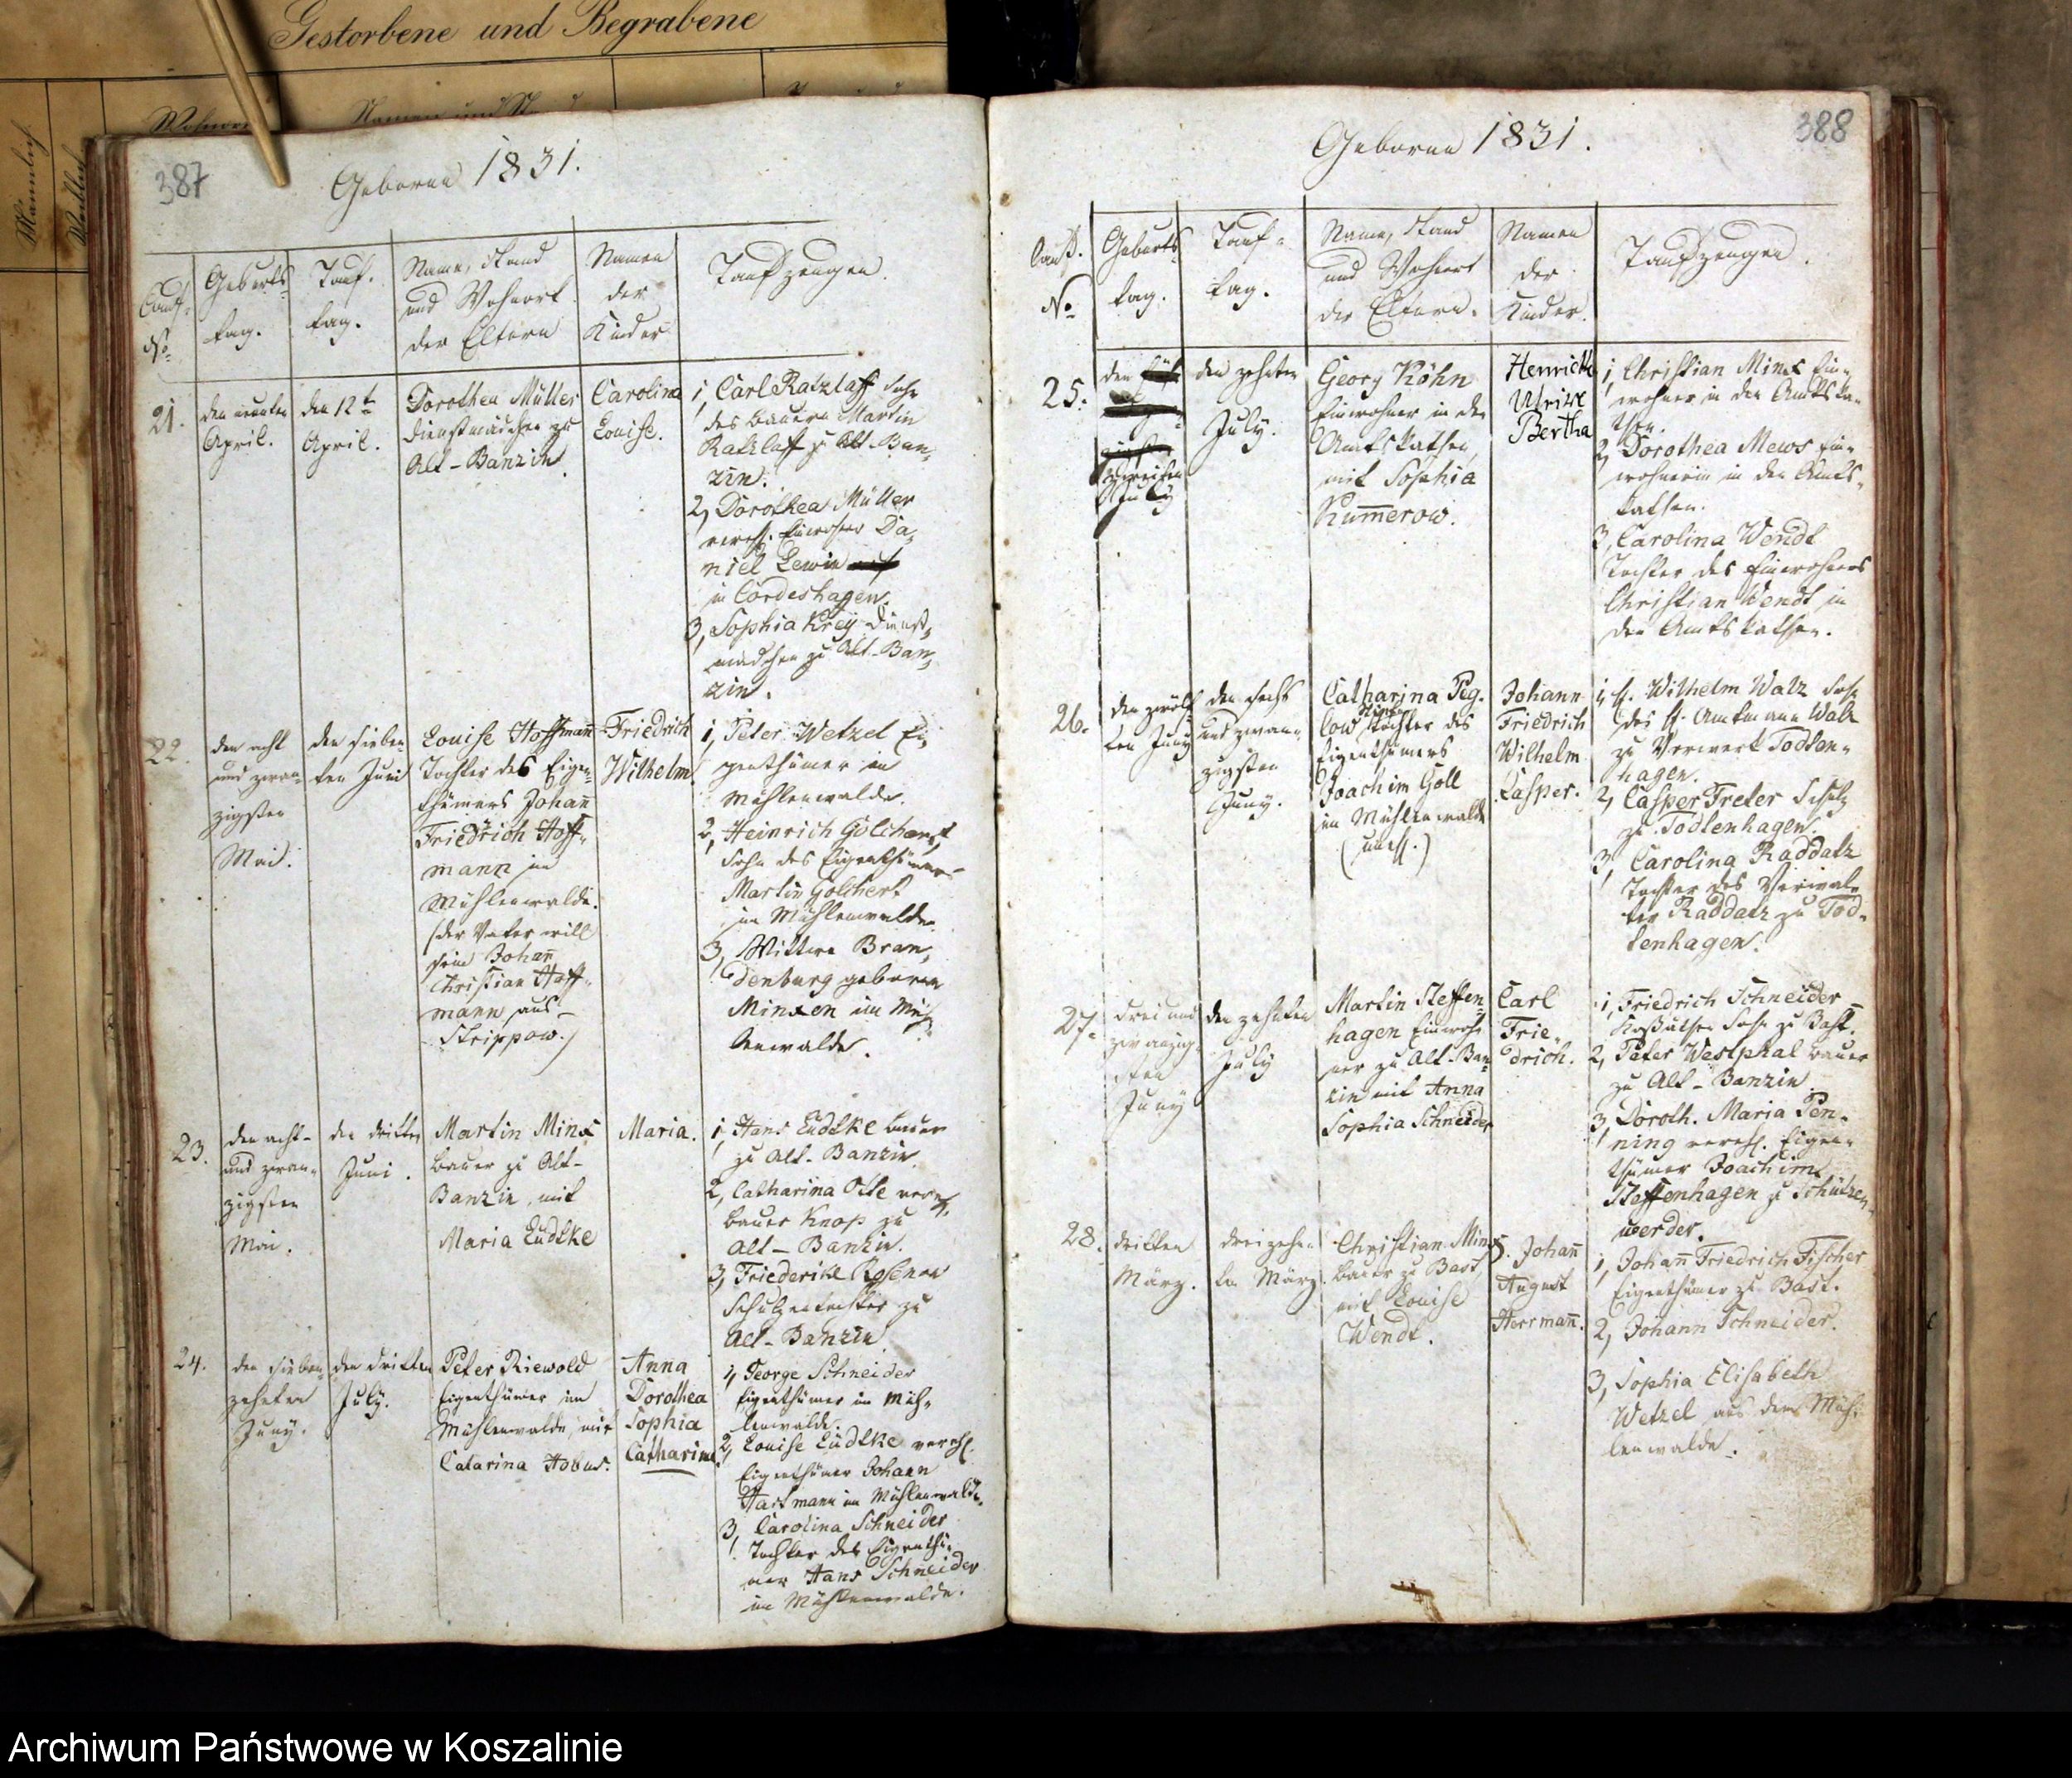 Gestorbene und Begrabene
Männlich
Wohnort
387
Geborne 1831.
Lauf.
No
Geburts-
tag.
Tauf-
tag.
Name, Stand
und Wohnort
der Eltern
Namen
der
Kinder
Taufzeugen.
21.
den neunten
April.
den 12te
April.
Dorothea Müller
Dienstmädchen zu
Alt-Banzin.
Carolina
Louise.
1, Carl Ratzlaff Sohn
des Bauern Martin
Ratzlaff zu Alt-Ban-
zin.
2, Dorothea Müller
verehl. Einwohner Da-
niel Lewin
in Cordeshagen.
3, Sophia Krey Dienst-
mädchen zu Alt-Ban-
zin.
22.
den acht
und zwan-
zigsten
Mai.
den sieben
ten Juni
Louise Hoffmann
Tochter des Eigen-
thümers Johann
Friedrich Hoff-
mann im
Mühlenwalde.
(der Vater will
sein Johann
Christian Hoff-
mann aus
Strippow.)
Friedrich
Wilhelm.
1, Peter Wetzel Ei-
genthümer im
Mühlenwalde.
2, Heinrich Golchert
Sohn des Eigenthümers
Martin Golchert
im Mühlenwalde.
3, Wittwe Bran-
denburg geborne
Minxen im Müh-
lenwalde.
23.
den acht-
und zwan-
zigsten
Mai.
den dritten
Juni.
Martin Minx
Bauer zu Alt-
Banzin, mit
Maria Lüdtke
Maria.
1, Hans Lüdtke Bauer
zu Alt-Banzin.
2, Catharina Otte verehl.
Bauer Knop zu
Alt-Banzin.
3, Friederike Rosenow
Schulzentochter zu
Alt-Banzin.
24.
den sieben
zehnten
Juny.
den dritten
July.
Peter Riewold
Eigenthümer im
Mühlenwalde, mit
Catarina
Anna
Dorothea
Sophia
Catharina.
1, George Schneider
Eigenthümer im Müh-
lenwalde.
2, Louise Lüdtke verehl.
Eigenthümer Johann
Hartmann im Mühlenwalde.
3, Carolina Schneider
Tochter des Eigenthü-
mer Hans Schneider
im Mühlenwalde.
388
Geborne 1831.
Lauf.
No
Geburts-
tag.
Tauf-
tag.
Name, Stand
und Wohnort
der Eltern.
Namen
der
Kinder.
Taufzeugen.
25.
den
zweiten
July
den zehnten
July.
Georg Köhn
Einwohner in den
Amtskathen,
mit Sophia
Kummerow.
Henriette
Ulrike
Bertha
1, Christian Minx Ein-
wohner in den Amtska-
then.
2, Dorothea Mews Ein-
wohnerin in den Amts-
kathen.
3, Carolina Wendt
Tochter des Einwohners
Christian Wendt in
den Amtskathen.
26.
den zwölf
ten Juny
den sechs
und zwan-
zigsten
Juny.
Catharina Peg-
low Stieftochter des
Eigenthümers
Joachim Goll
im Mühlenwalde
(unehl.)
Johann
Friedrich
Wilhelm
Casper.
1, H. Wilhelm Walz Sohn
des H. Amtmann Walz
zu Vorwerk Todten-
hagen.
2, Casper Treter Schulz
zu Todtenhagen.
3, Carolina Raddatz
Tochter des Verwal-
ter Raddatz zu Tod-
tenhagen.
27.
drei und
zwanzig-
sten
Juny
den zehnten
July
Martin Steffen-
hagen Einwoh-
ner zu Alt-Ban-
zin mit Anna
Sophia Schneider
Carl
Frie-
drich.
1, Friedrich Schneider
Koßäthen Sohn zu Bast.
2, Peter Westphal Bauer
zu Alt-Banzin
3, Doroth. Maria Pen-
ning verehl. Eigen-
thümer Joachim
Steffenhagen zu Schützen-
werder.
28.
dritten
März.
dreizehn-
ten März.
Christian Minx
Bauer zu Bast,
mit Louise
Wendt.
Johann
August
Herrmann.
1, Johann Friedrich Fischer
Eigenthümer zu Bast.
2, Johann Schneider.
3, Sophia Elisabeth
Wetzel aus dem Müh-
lenwalde.
Archiwum Państwowe w Koszalinie